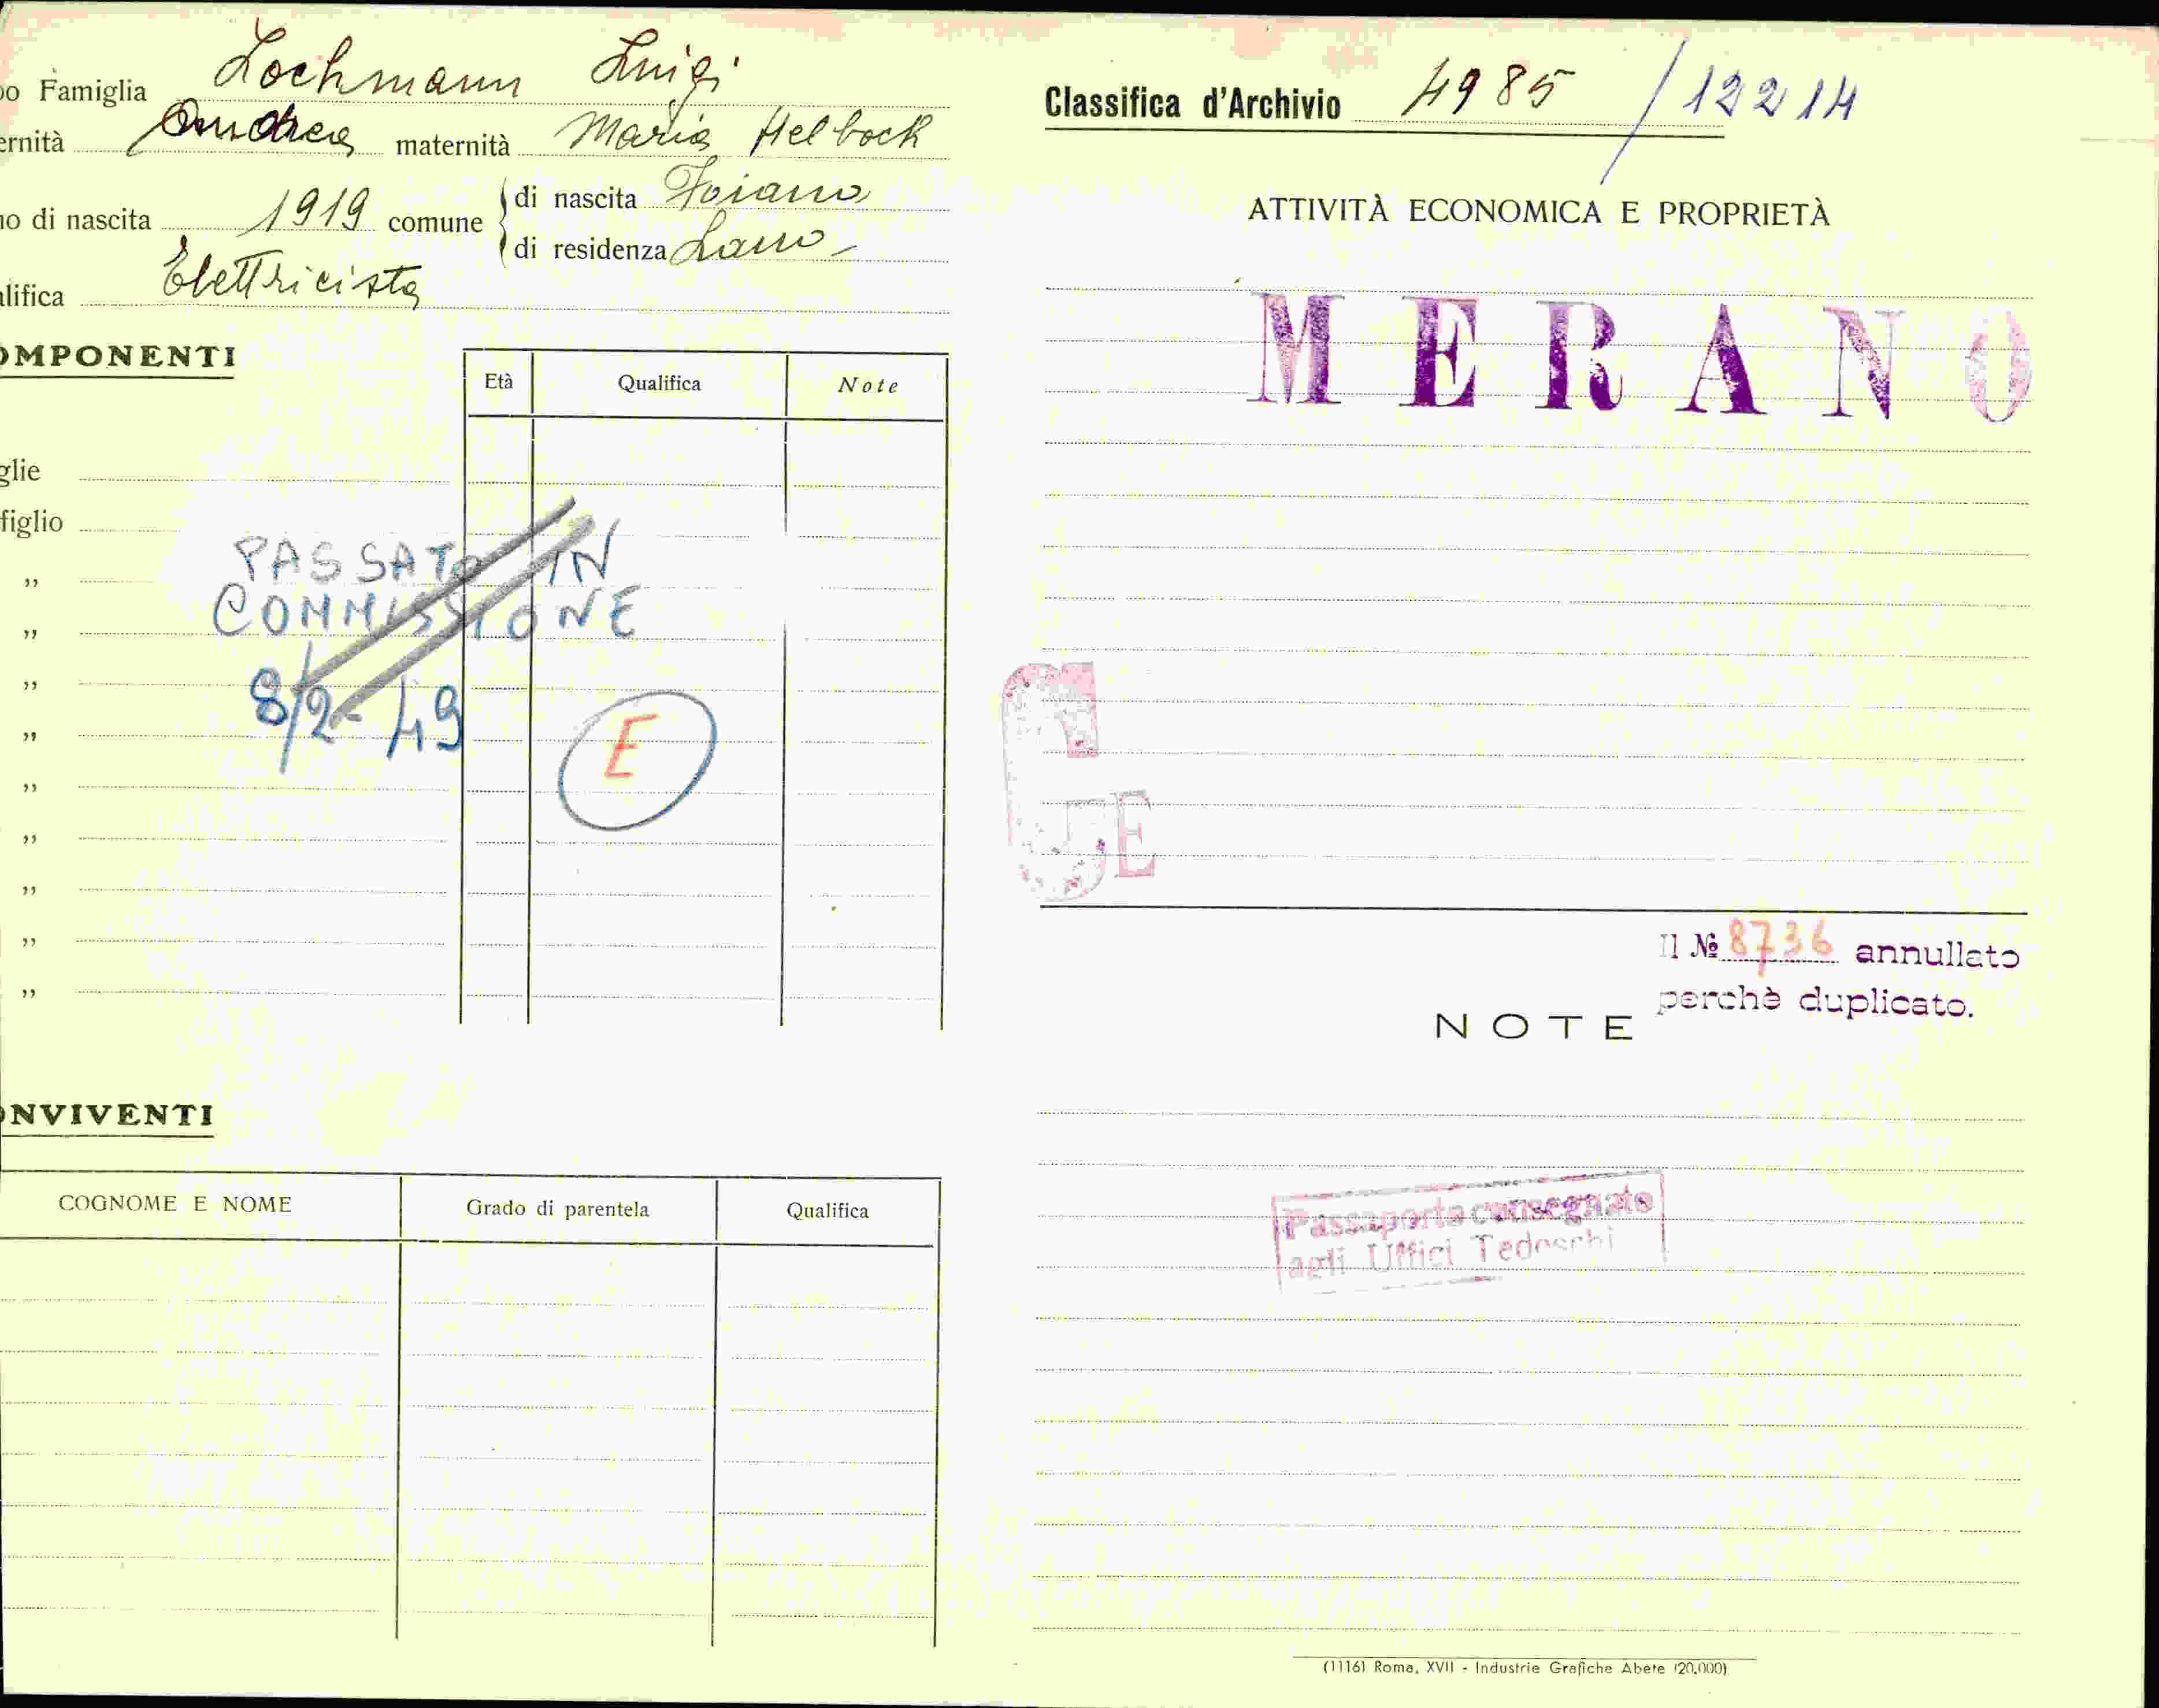 o Famiglia Lochmann Luigi
ernità Andrea maternità Maria Helbock
o di nascita 1919 comune di nascita Foiano
di residenza Lano
lifica Elettricista
OMPONENTI
Età Qualifica Note
glie
figlio
"
"
"
"
"
"
"
"
"
PASSATO IN
COMMISSIONE
8/2-49
E
ONVIVENTI
COGNOME E NOME Grado di parentela Qualifica
Classifica d'Archivio 4985 / 12214
ATTIVITÀ ECONOMICA E PROPRIETÀ
MERANO
E
Il № 8736 annullato
perchè duplicato.
NOTE
Passaporto consegnato
agli Uffici Tedeschi
(1116) Roma, XVII - Industrie Grafiche Abete (20.000)